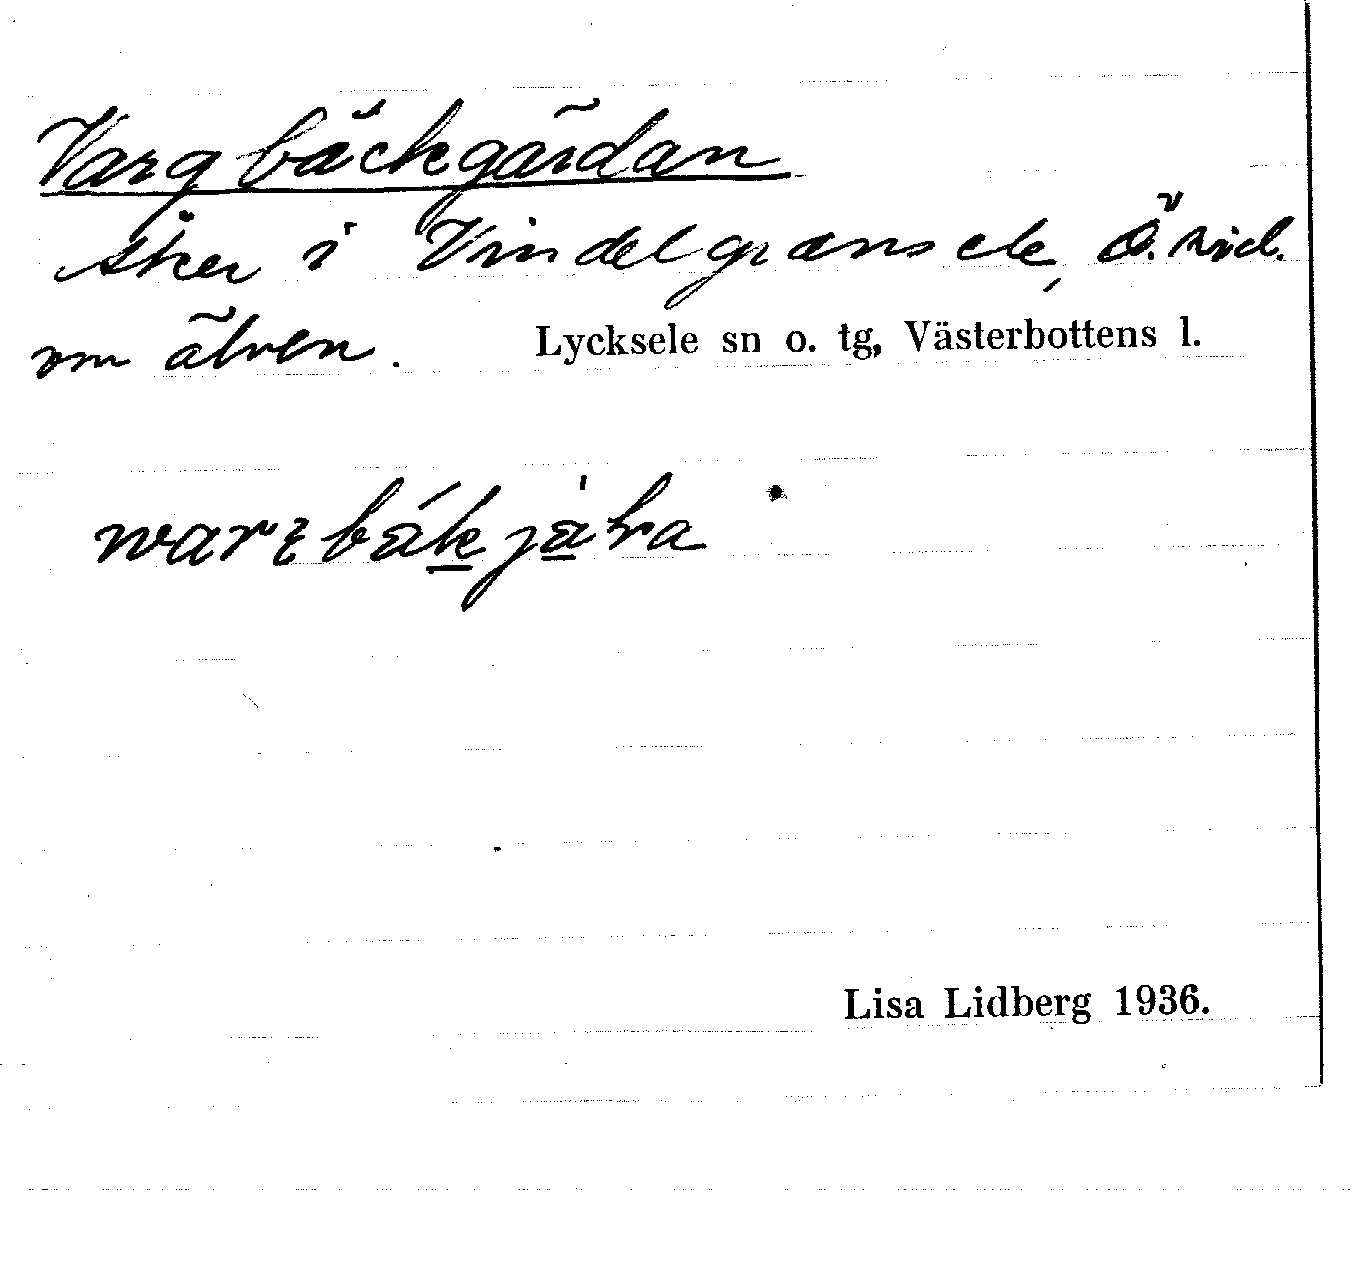 Vargbäckgärdan
åker i Vindelgransele, Ö. sid.
om älven. Lycksele sn o. tg, Västerbottens l.
Lisa Lidberg 1936.